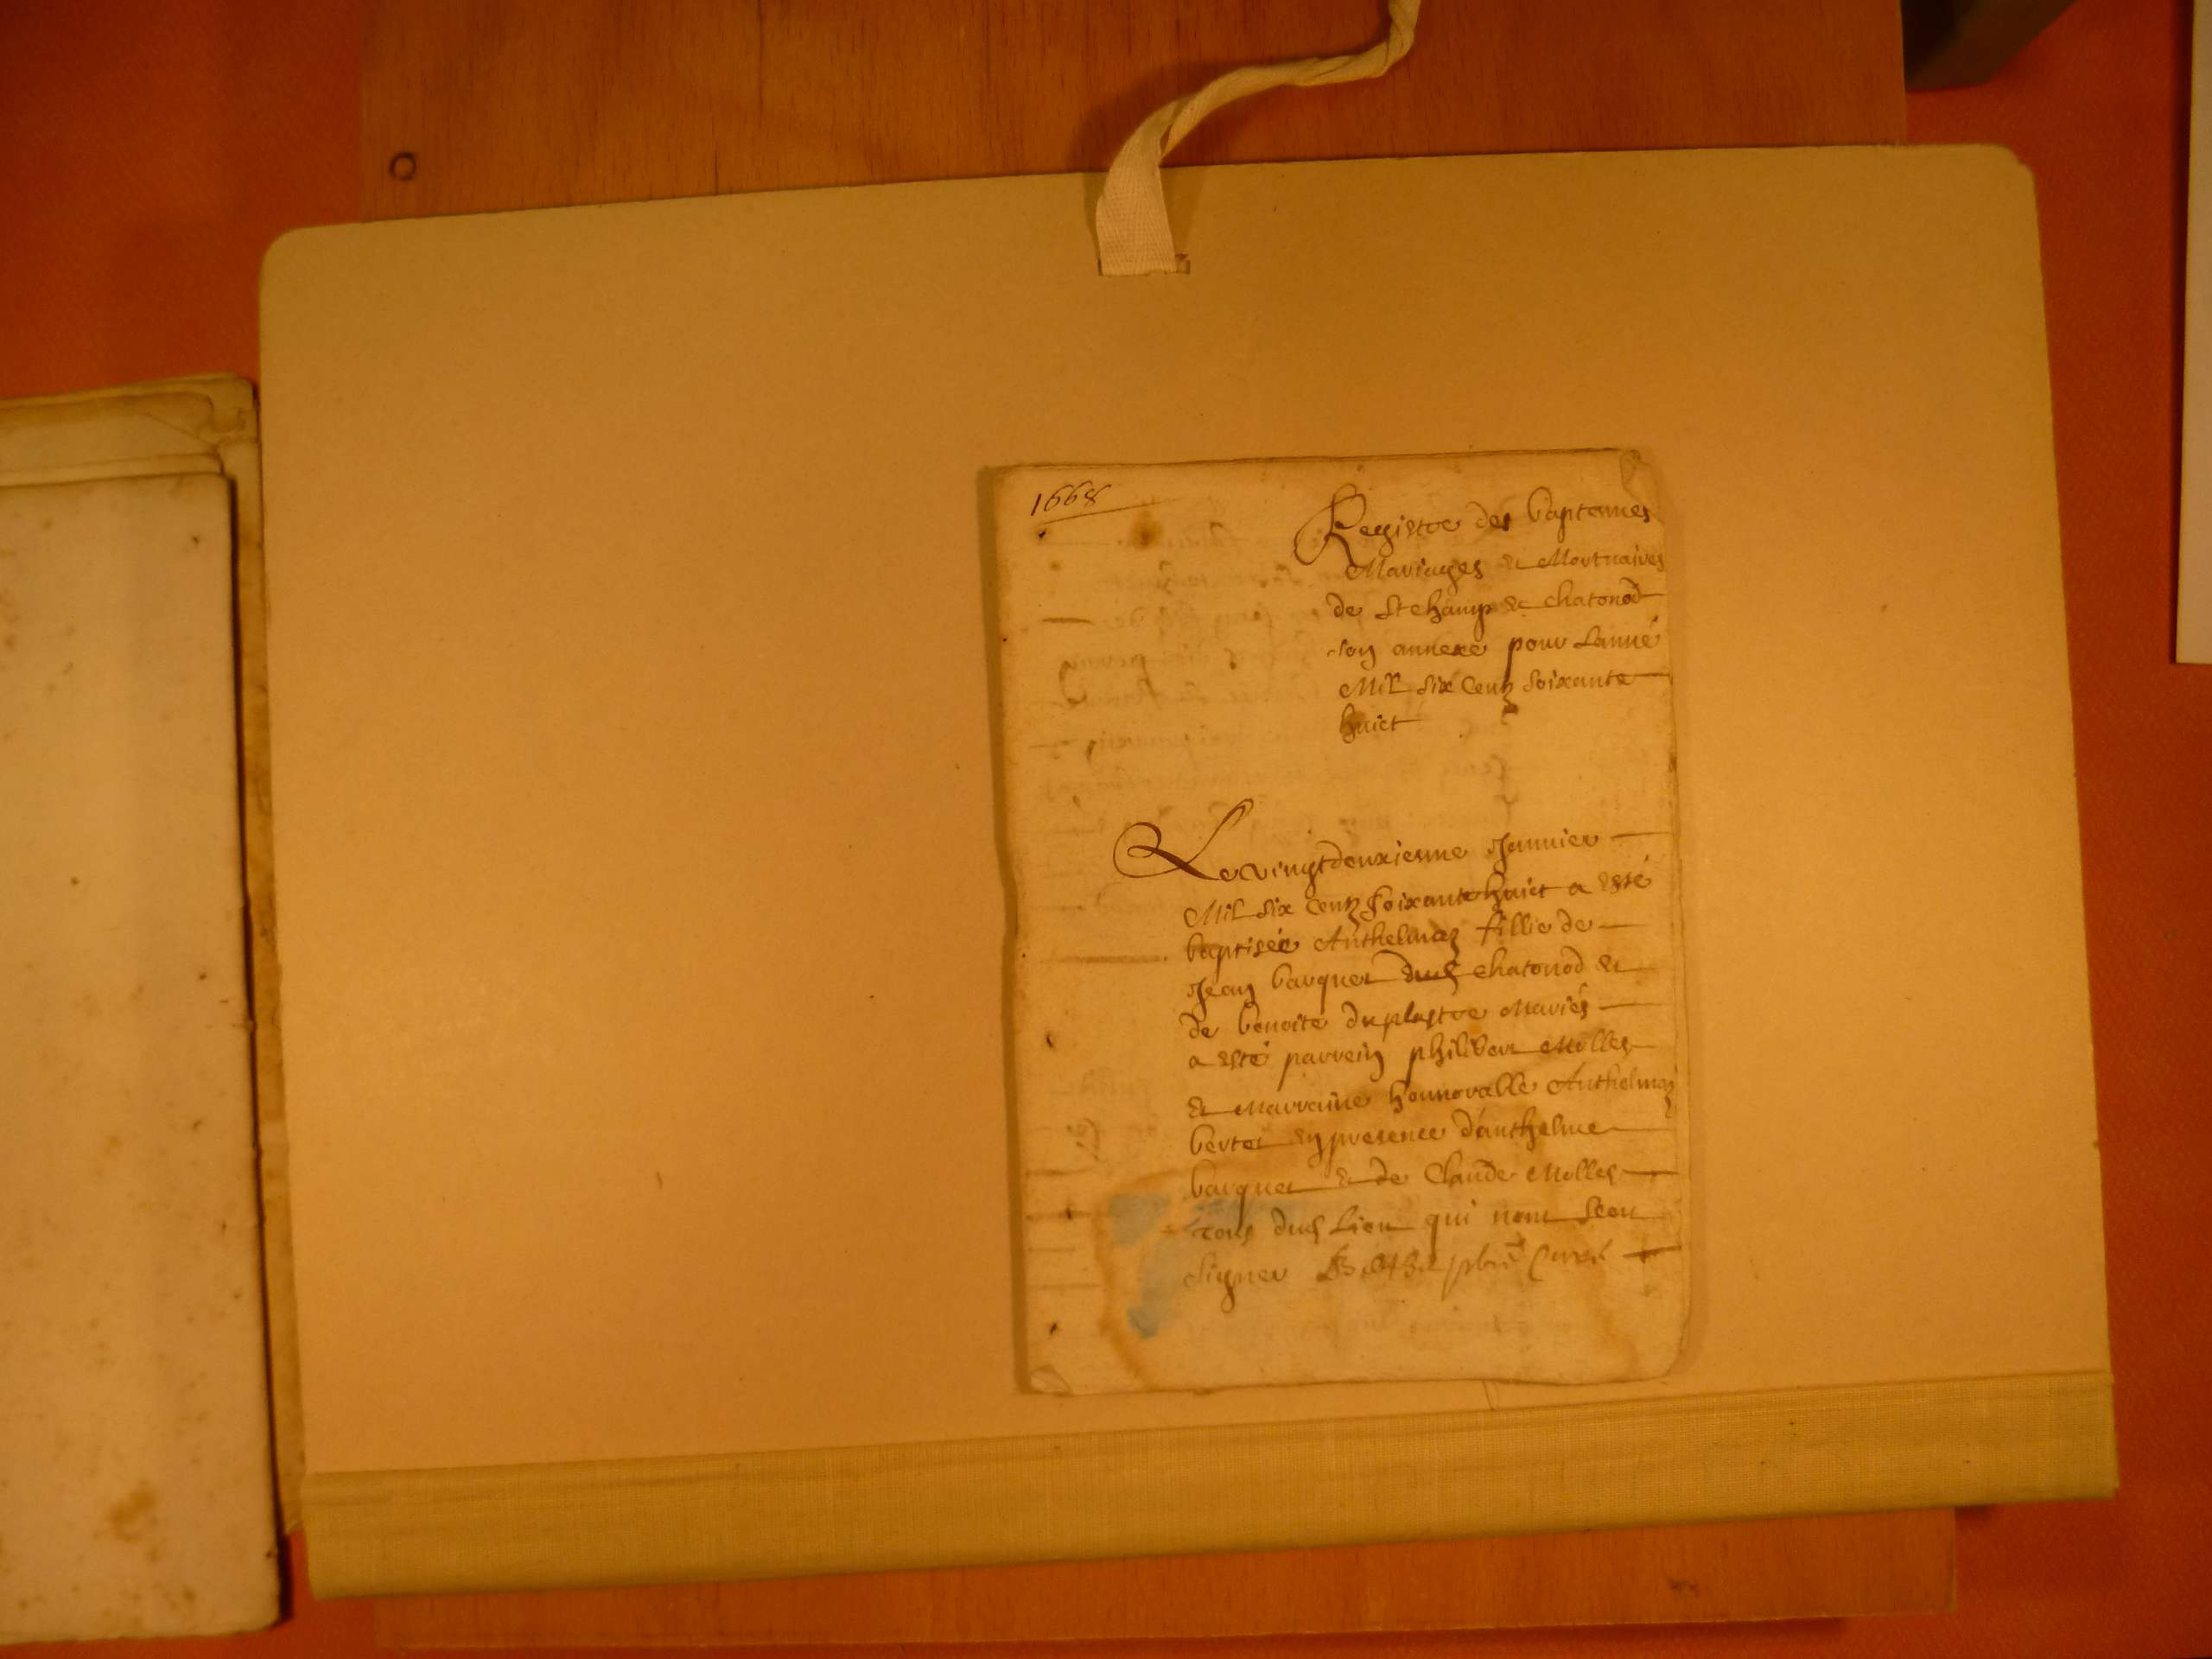 1668
Registre des baptemes
Mariages et Mortuaires
de St champ et chatonod
son annexe pour Lanné
Mil six centz soixante
huict
Le vingtdeuxiesme Jannier
Mil six centz soixante huict a esté
baptisée Anthelmaz fillie de
Jean barquet dud chatonod et
de benoite duplastre Mariés
a esté parrein philibert Molles
et Marraine honnoralle Anthelmaz
bertet en presence d'anthelme
barquet et de Claude Molles
tous dud Lieu qui nont sceu
signer pbre Curé